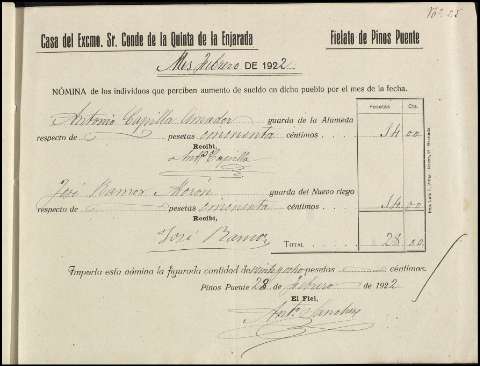 Casa del Excmo. Sr. Conde de la Quinta de la Enjarada Fielato de Pinos Puente
Mes Febrero DE 1922
NÓMINA de los individuos que perciben aumento de sueldo en dicho pueblo por el mes de la fecha.
Pesetas Cts.
Antonio Capilla Amador guarda de la Alameda
respecto de pesetas céntimos 14 00
Recibí,
Antº Capilla
José Ramos Moron guarda del Nuevo riego
respecto de pesetas céntimos 14 00
Recibí,
José Ramos TOTAL 28 00
Importa esta nómina la figurada cantidad de veintiocho pesetas céntimos.
Pinos Puente 28 de Febrero de 1922
El Fiel,
Antº Sanchez